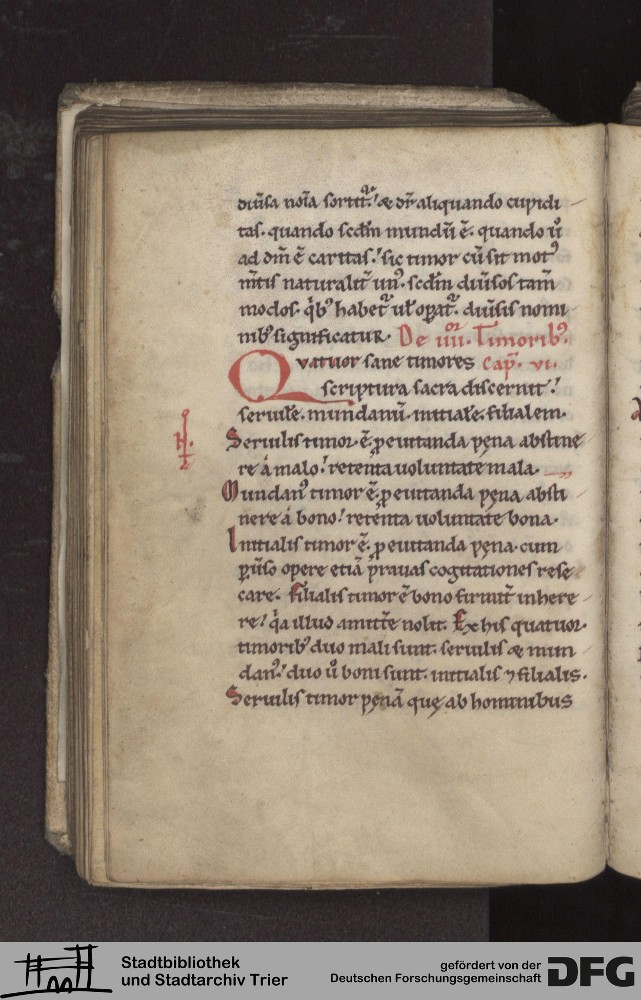 diũsa noĩa sortit᷑.' & dr̃ aliquando cupidi
tas. quando scdm̃ mundũ ẽ. quando ũ
ad dm̃ ẽ caritas.' sic timor cũ sit mot᷒
m̃tis naturalit̃ un᷒. scdm̃ diũsos tam̃
modos. q̇b᷒ habet᷑ uł oꝑat᷑. diũsis nomi
nib᷒ significatur. De iiii.or Timorib᷒.
Quatuor sane timores Cap̃. vi.
scriptura sacra discernit.'
seruilẽ. mundanũ. initialẽ. filialem.
Seruilis timor. ẽ. ꝓ euitanda pęna abstine
re á malo.' retenta uoluntate mala.
Mundan᷒ timor ẽ. ꝓ euitanda pęna absti
nere á bono.' retẽnta uoluntate bona.
Initialis timor ẽ. ꝓ euitanda pęna. cum
ꝑũso opere etiã p̃rauas cogitationes rese
care. Filialis timor ẽ bono firmit̃ inhere
re.' q̇a illud amitt̃e nolit. Ex his quatuor.
timorib᷒ duo mali sunt. seruilis & mun
dan᷒.' duo ů boni sunt. initialis ⁊ filialis.
Seruilis timor pęnã quę ab hominibus
Stadtbibliothek
und Stadtarchiv Trier
gefördert von der
Deutschen Forschungsgemeinschaft
DFG